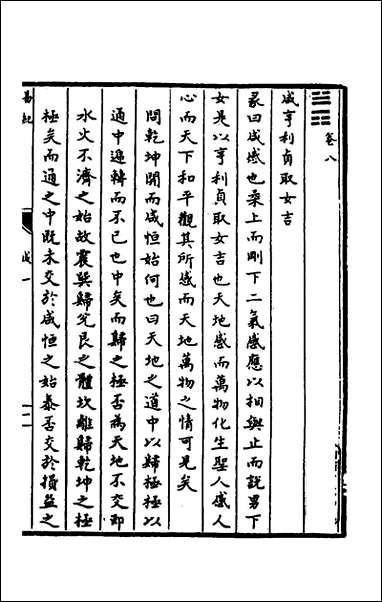 卷八
咸亨利貞取女吉
彖曰咸感也柔上而剛下二氣感應以相與止而說男下
女是以亨利貞取女吉也天地感而萬物化生聖人感人
心而天下和平觀其所感而天地萬物之情可見矣
問乾坤開而咸恒始何也曰天地之道中以歸極極以
通中遞轉而不已也中矣而歸之極否為天地不交即
水火不濟之始故震巽歸兌艮之體坎離歸乾坤之極
極矣而通之中既未交於咸恒之始泰否交於損益之
易
咸一